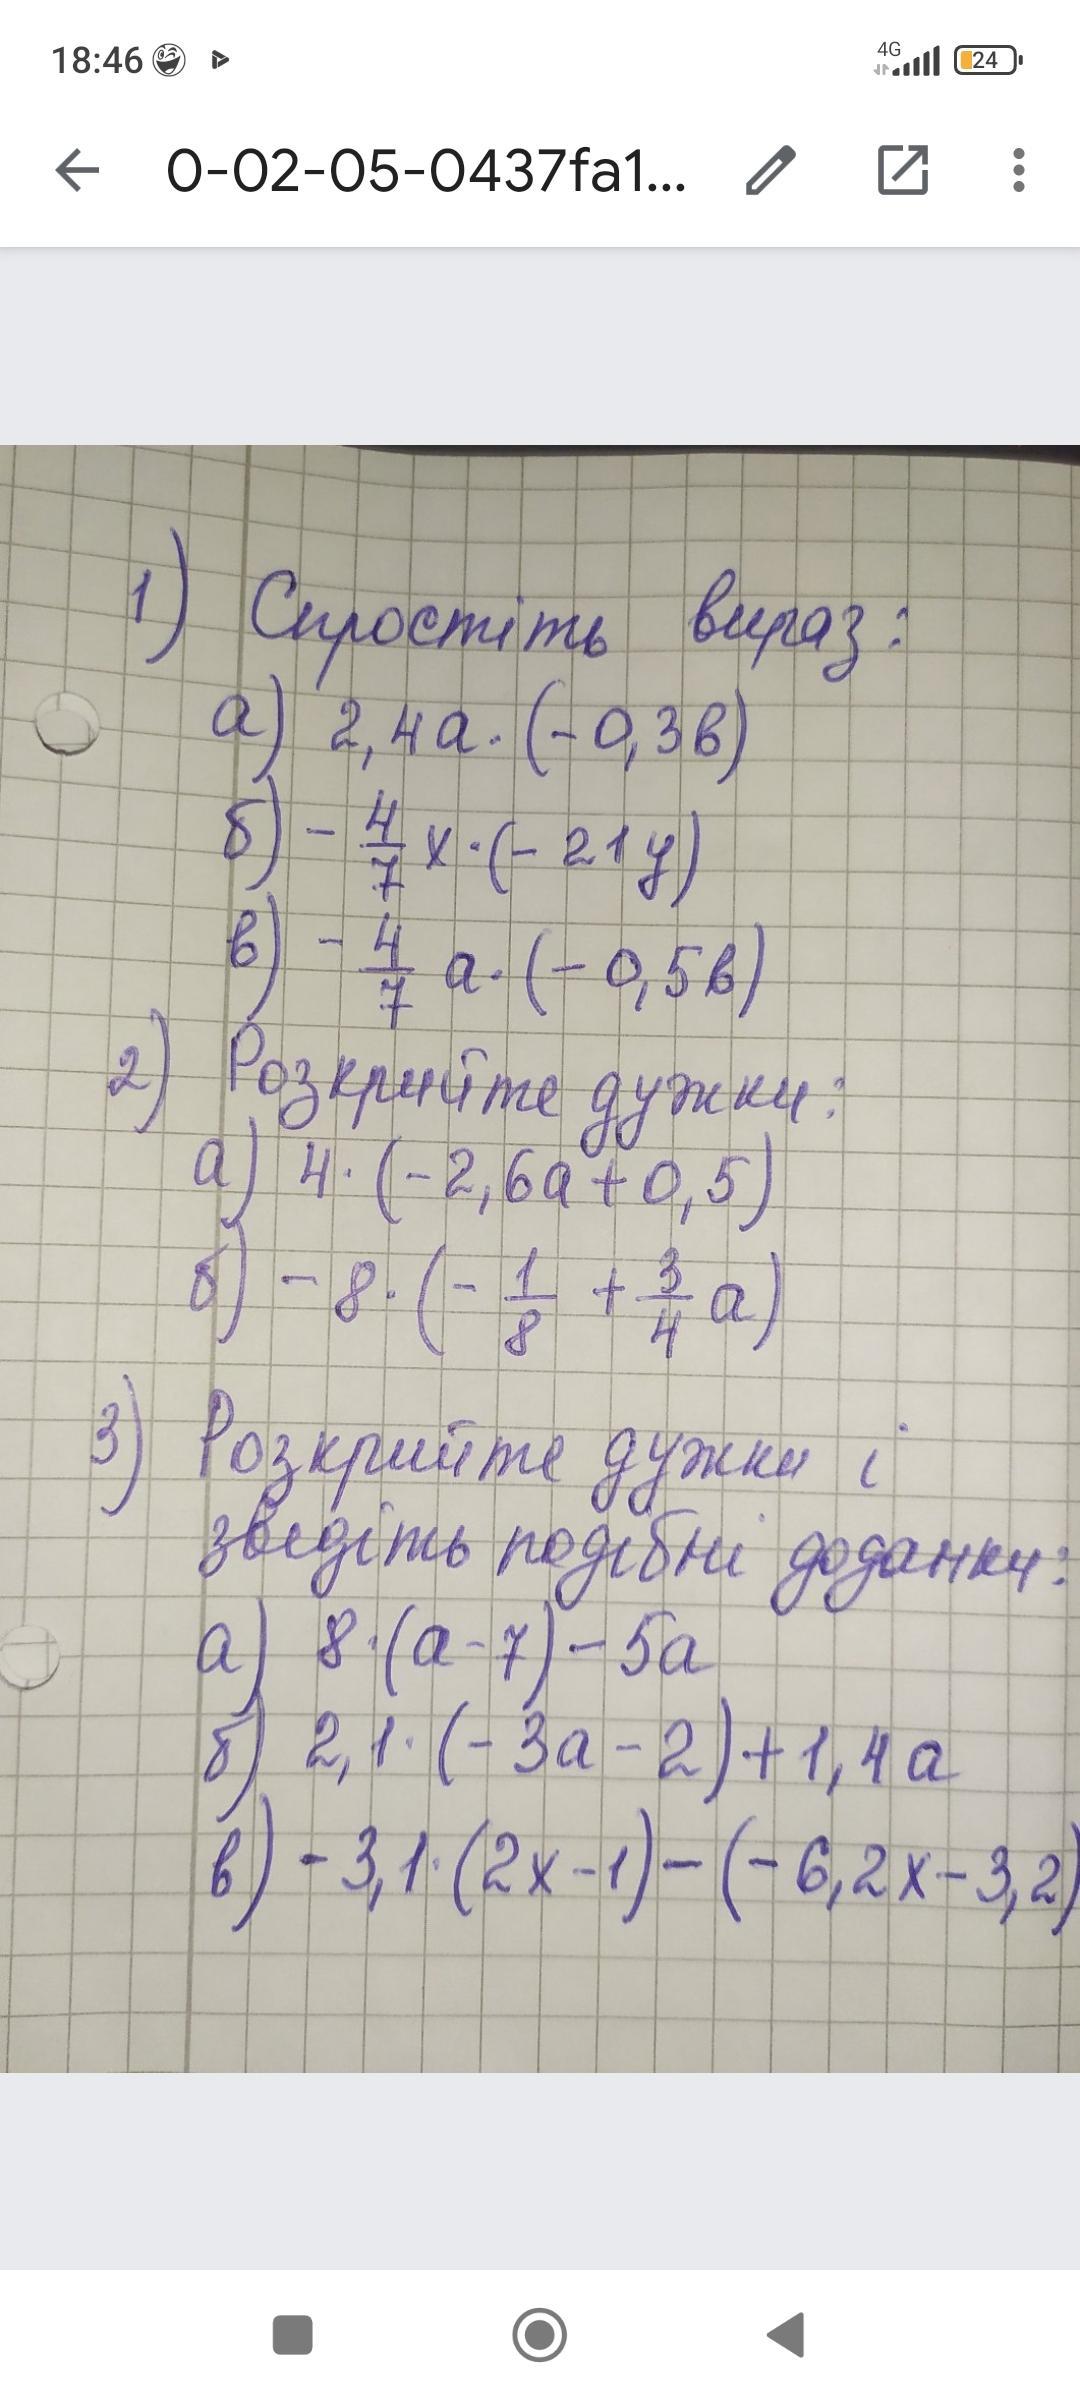 18:46 4G 24
0-02-05-0437fa1...
1) Спростіть вираз:
а) 2,4а·(-0,3в)
б) - 4/7 х·(- 21у)
в) - 4/7 а·(- 0,5в)
2) Розкрийте дужки:
а) 4·(-2,6а+0,5)
б) - 8·(- 1/8 + 3/4 а)
3) Розкрийте дужки і
зведіть подібні доданки:
а) 8·(а-7)-5а
б) 2,1·(-3а-2)+1,4а
в) -3,1·(2х-1)-(-6,2х-3,2)